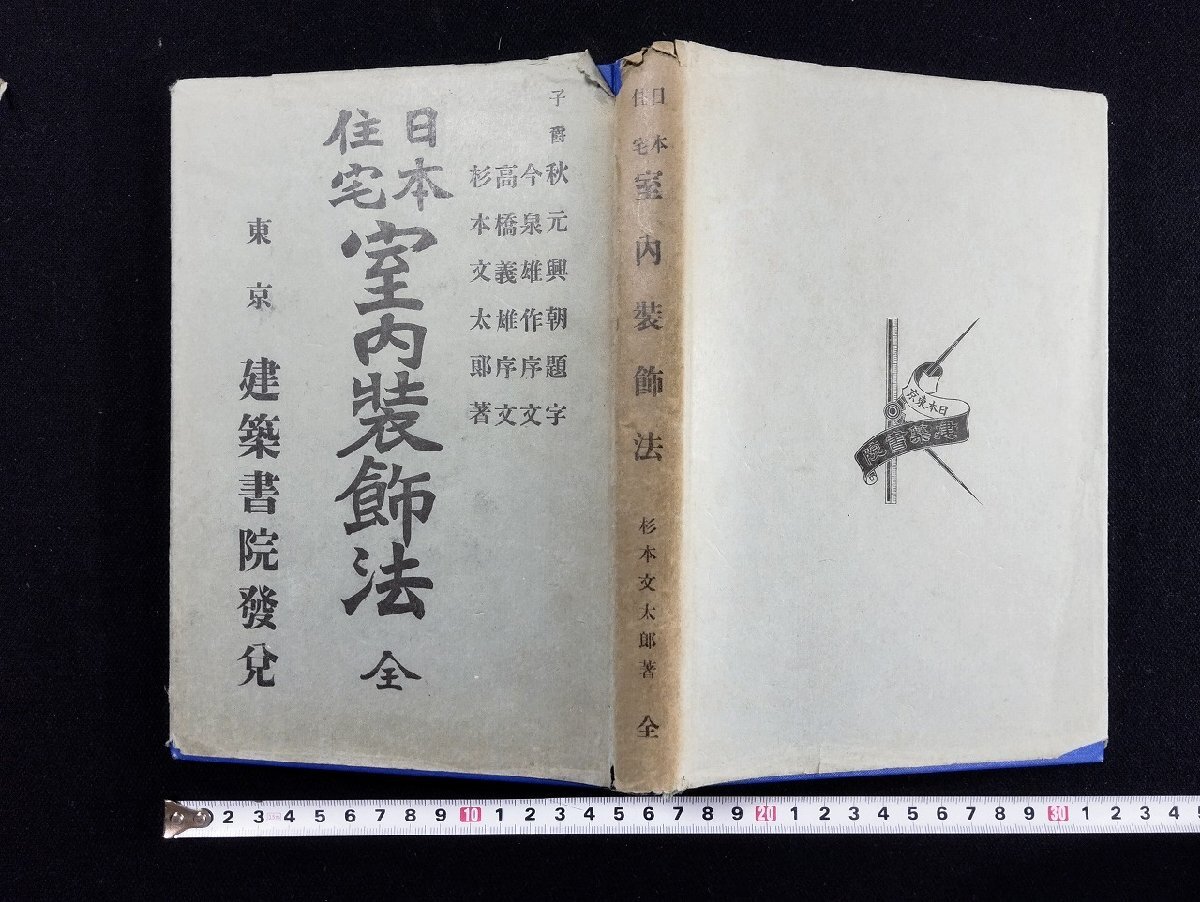 子爵 秋元興朝題字
今泉雄作序文
高橋義雄序文
杉本文太郎著
日本
住宅
室内装飾法 全
東京 建築書院發兌
日本
住宅
室内装飾法 杉本文太郎著 全
日本東京
建築書院
2 3 4 5 6 7 8 9 10 1 2 3 4 5 6 7 8 9 20 1 2 3 4 5 6 7 8 9 30 1 2 3 4 5